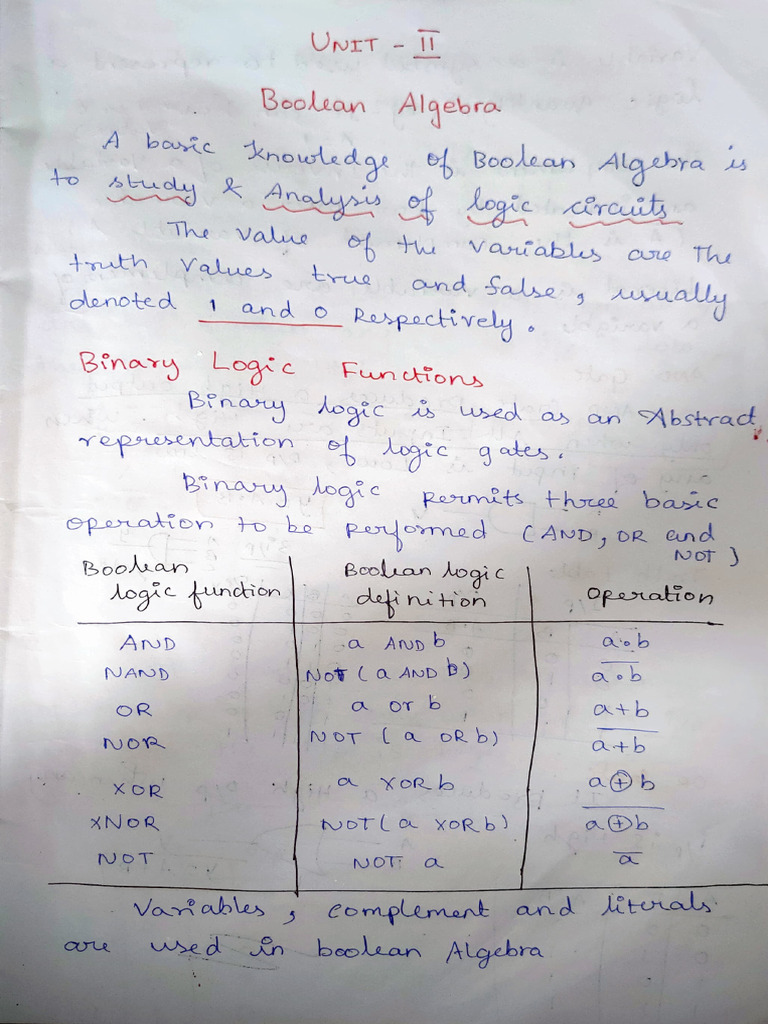 UNIT - II
Boolean Algebra
A basic knowledge of Boolean Algebra is
to study & Analysis of logic circuits
The value of the variables are The
truth values true and false, usually
denoted 1 and 0 Respectively.
Binary Logic Functions
Binary logic is used as an Abstract
representation of logic gates.
Binary logic permits three basic
operation to be performed (AND, OR and
NOT)
Boolean logic function | Boolean logic definition | Operation
AND | a AND b | a∘b
NAND | NOT (a AND b) | a̅∘̅b̅
OR | a or b | a+b
NOR | NOT (a OR b) | a̅+̅b̅
XOR | a XOR b | a⊕b
XNOR | NOT (a XOR b) | a̅⊕̅b̅
NOT | NOT a | a̅
Variables, complement and literals
are used in boolean Algebra